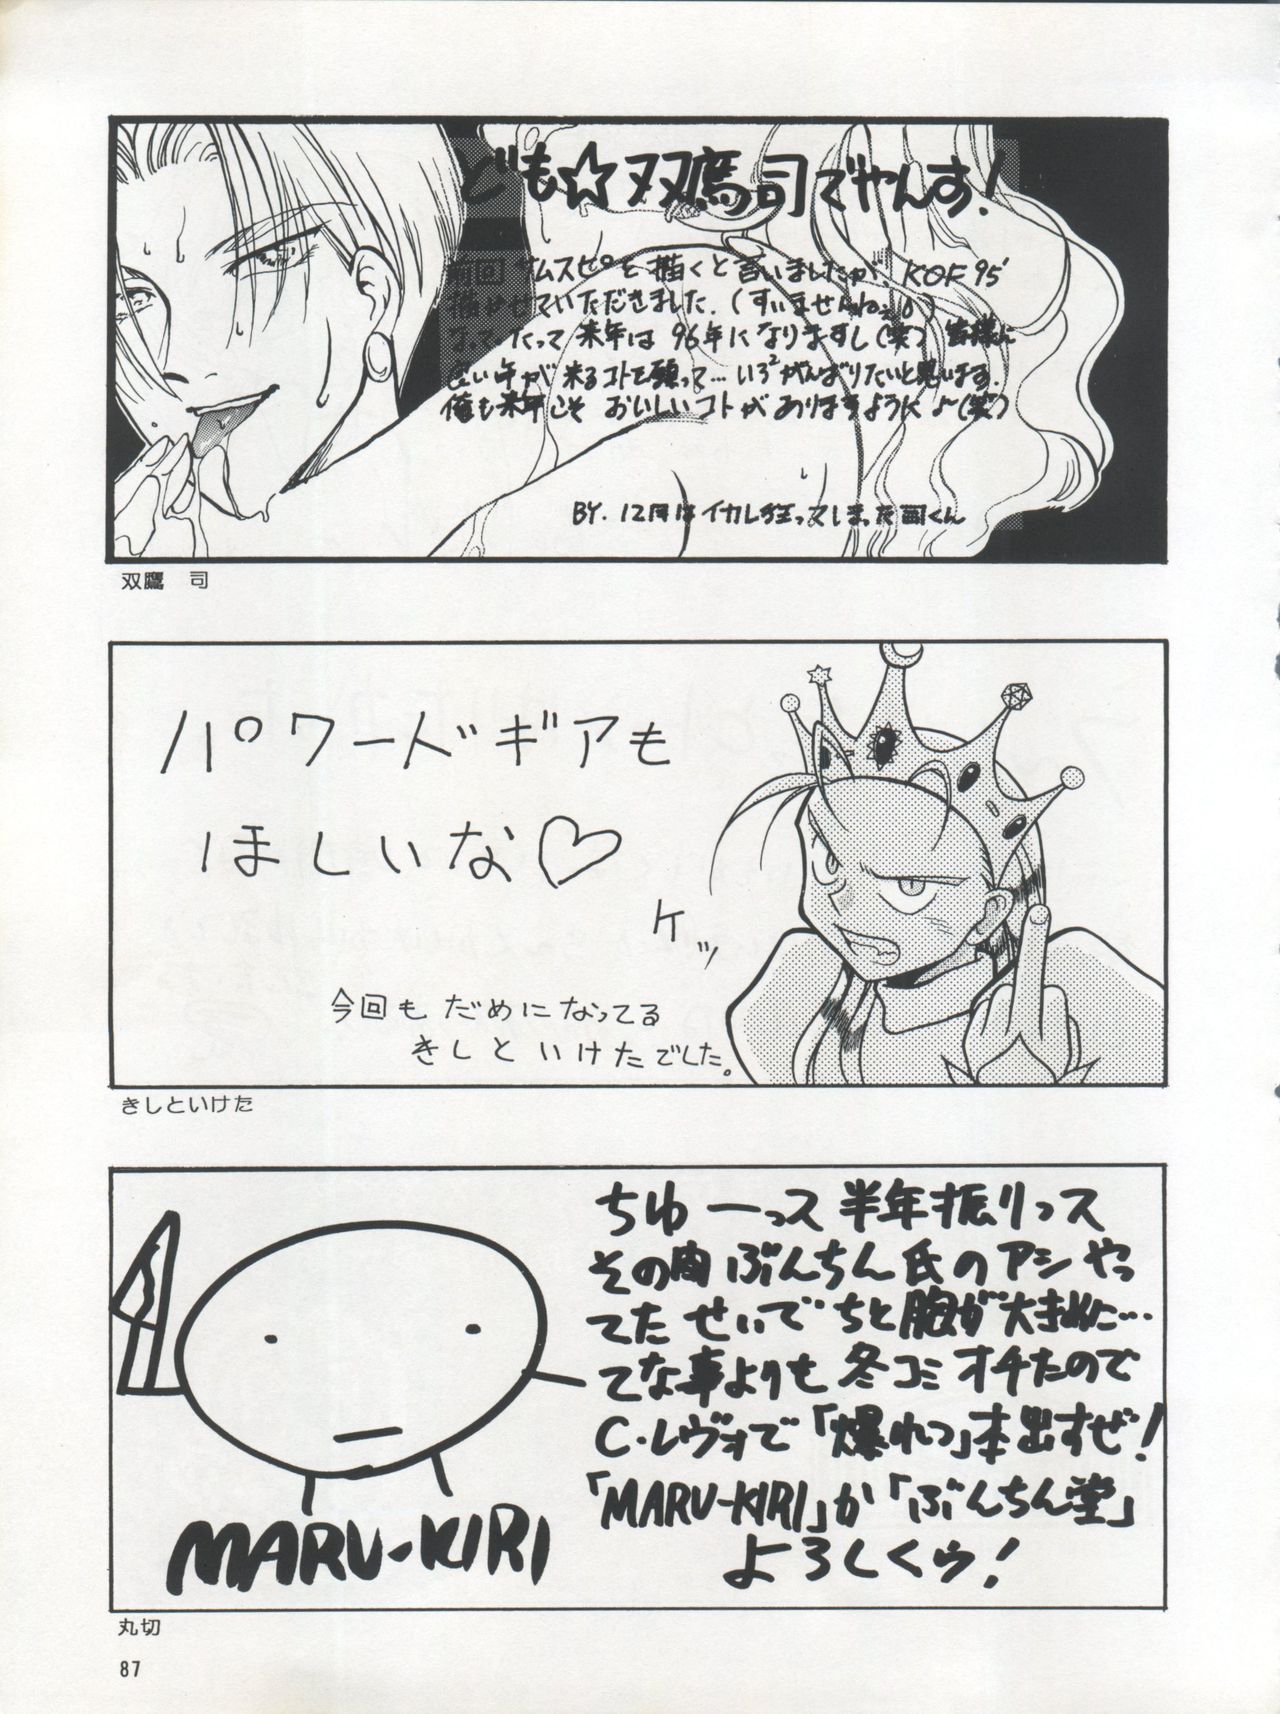 ども☆双鷹司でやんす!
前回サムスピを描くと言いましたが KOF95'
描かせていただきました.(すいませんねぇ)
なってたって来年は96年になりますし(笑) 皆様に
良い年が来るコトを願って…いろ²がんばりたいと思います.
俺も来年こそ おいしいコトがありますように〜(笑)
BY. 12月はイカレ狂ってしまった司くん
双鷹 司
パワードギアも
ほしいな♡
ケッ
今回も だめになってる
きしと いけたでした。
きしといけた
ちゅーっス 半年振りっス
その間 ぶんちん氏のアシやっ
てた せいで ちと胸が大きめに…
てな事よりも 冬コミ オチたので
C・レヴォで「爆れつ」本出すぜ!
「MARU-KIRI」か「ぶんちん堂」
よろしくゥ!
MARU-KIRI
丸切
87